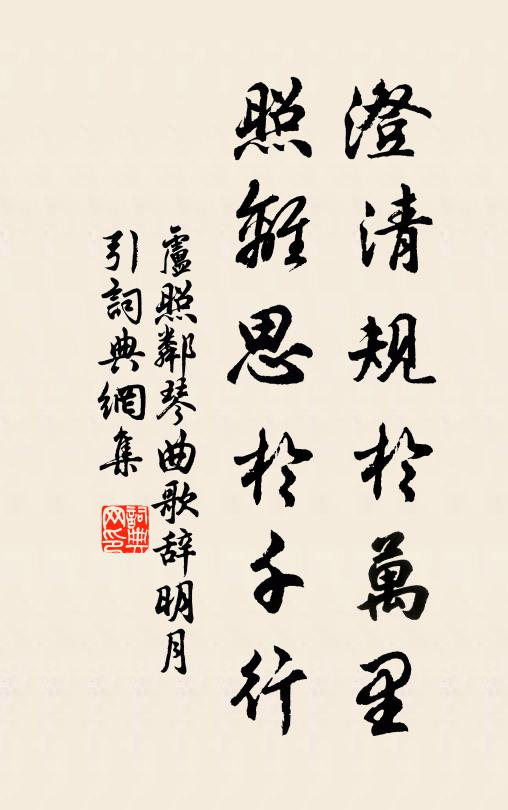 澄清規於萬里
照離思於千行
盧照鄰琴曲歌辞明月
引詞典網集
詞典
网印